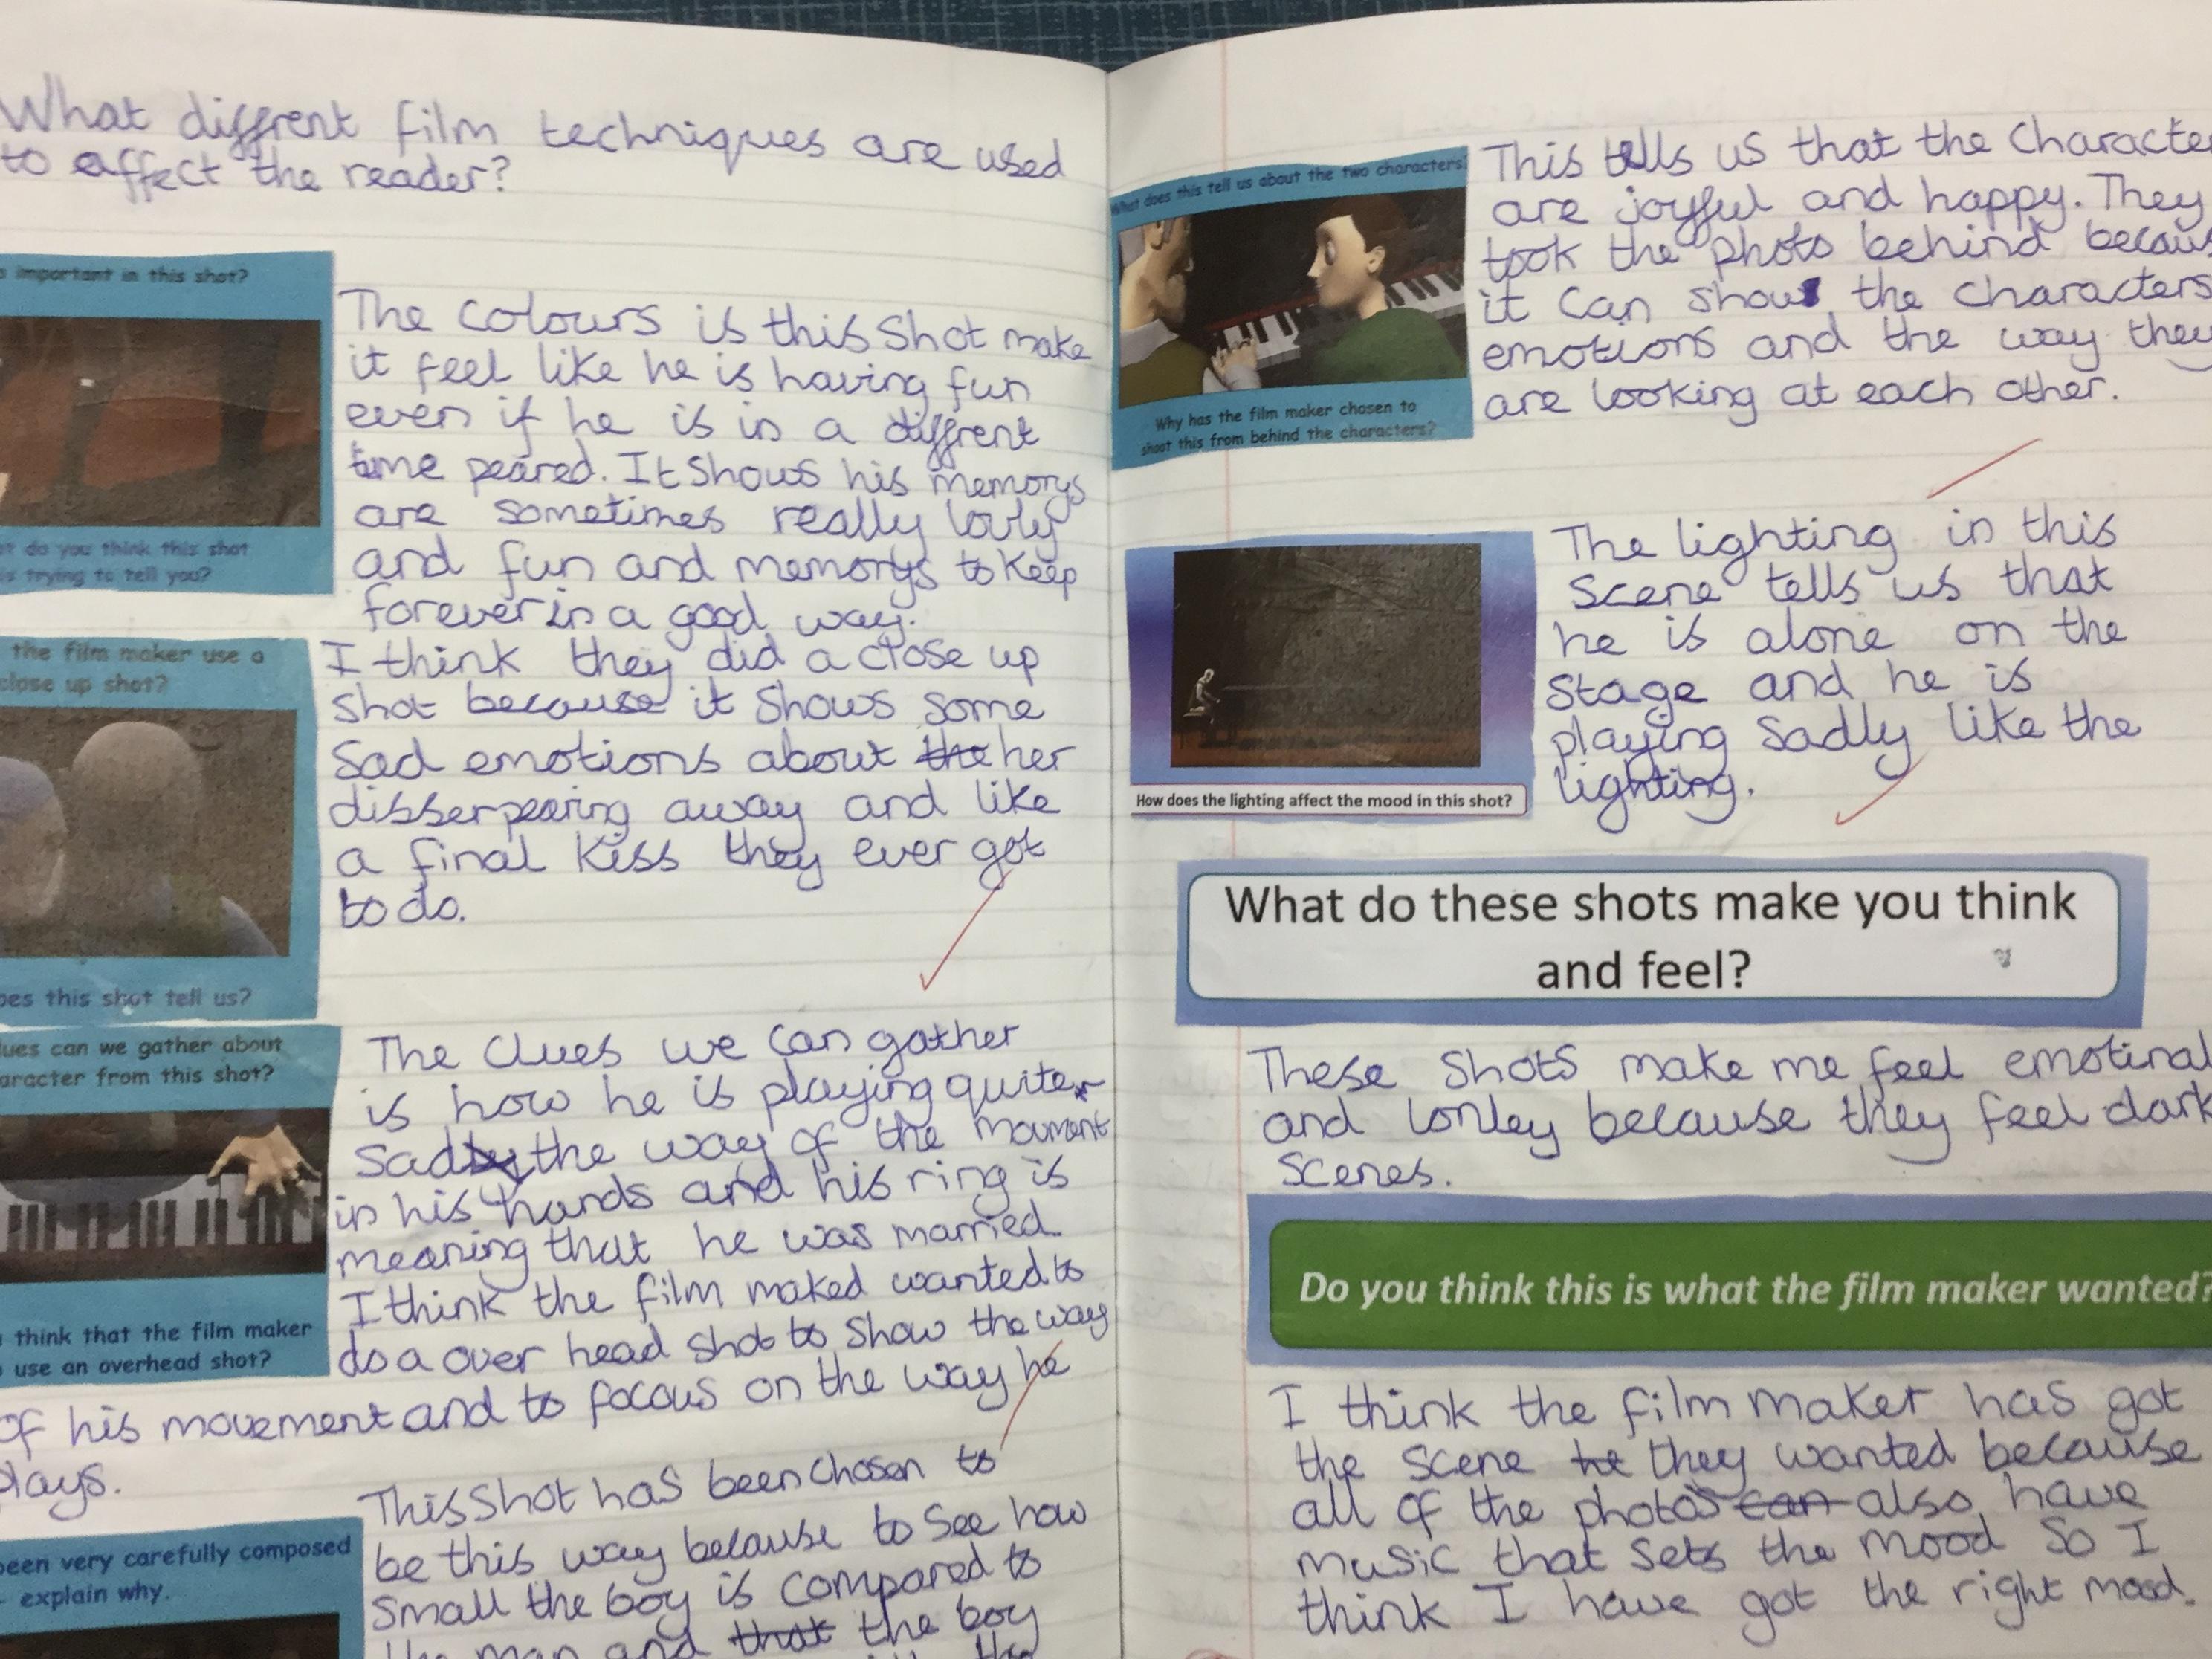 What diffrent film techniques are used
to affect the reader?
important in this shot?
do you think this shot
is trying to tell you?
The colours is this shot make
it feel like he is having fun
even if he is in a diffrent
time peared. It shows his memorys
are sometimes really lovly
and fun and memorys to keep
forever in a good way.
the film maker use a
close up shot?
does this shot tell us?
I think they did a close up
shot because it shows some
sad emotions about the her
disserpearing away and like
a final kiss they ever got
to do.
clues can we gather about
character from this shot?
think that the film maker
use an overhead shot?
The clues we can gather
is how he is playing quite
sadly the way of the moument
in his hands and his ring is
meaning that he was married.
I think the film maked wanted to
do a over head shot to show the way
of his movement and to focous on the way he
plays.
been very carefully composed
- explain why.
This shot has been chosen to
be this way because to see how
small the boy is compared to
the man and that the boy
What does this tell us about the two characters?
Why has the film maker chosen to
shoot this from behind the characters?
This tells us that the character
are joyful and happy. They
took the photo behind becaus
it can show the characters
emotions and the way they
are looking at each other.
How does the lighting affect the mood in this shot?
The lighting in this
scene tells us that
he is alone on the
stage and he is
playing sadly like the
lighting.
What do these shots make you think
and feel?
These shots make me feel emotinal
and lonley because they feel dark
scenes.
Do you think this is what the film maker wanted?
I think the film maker has got
the scene he they wanted because
all of the photos can also have
music that sets the mood so I
think I have got the right mood.